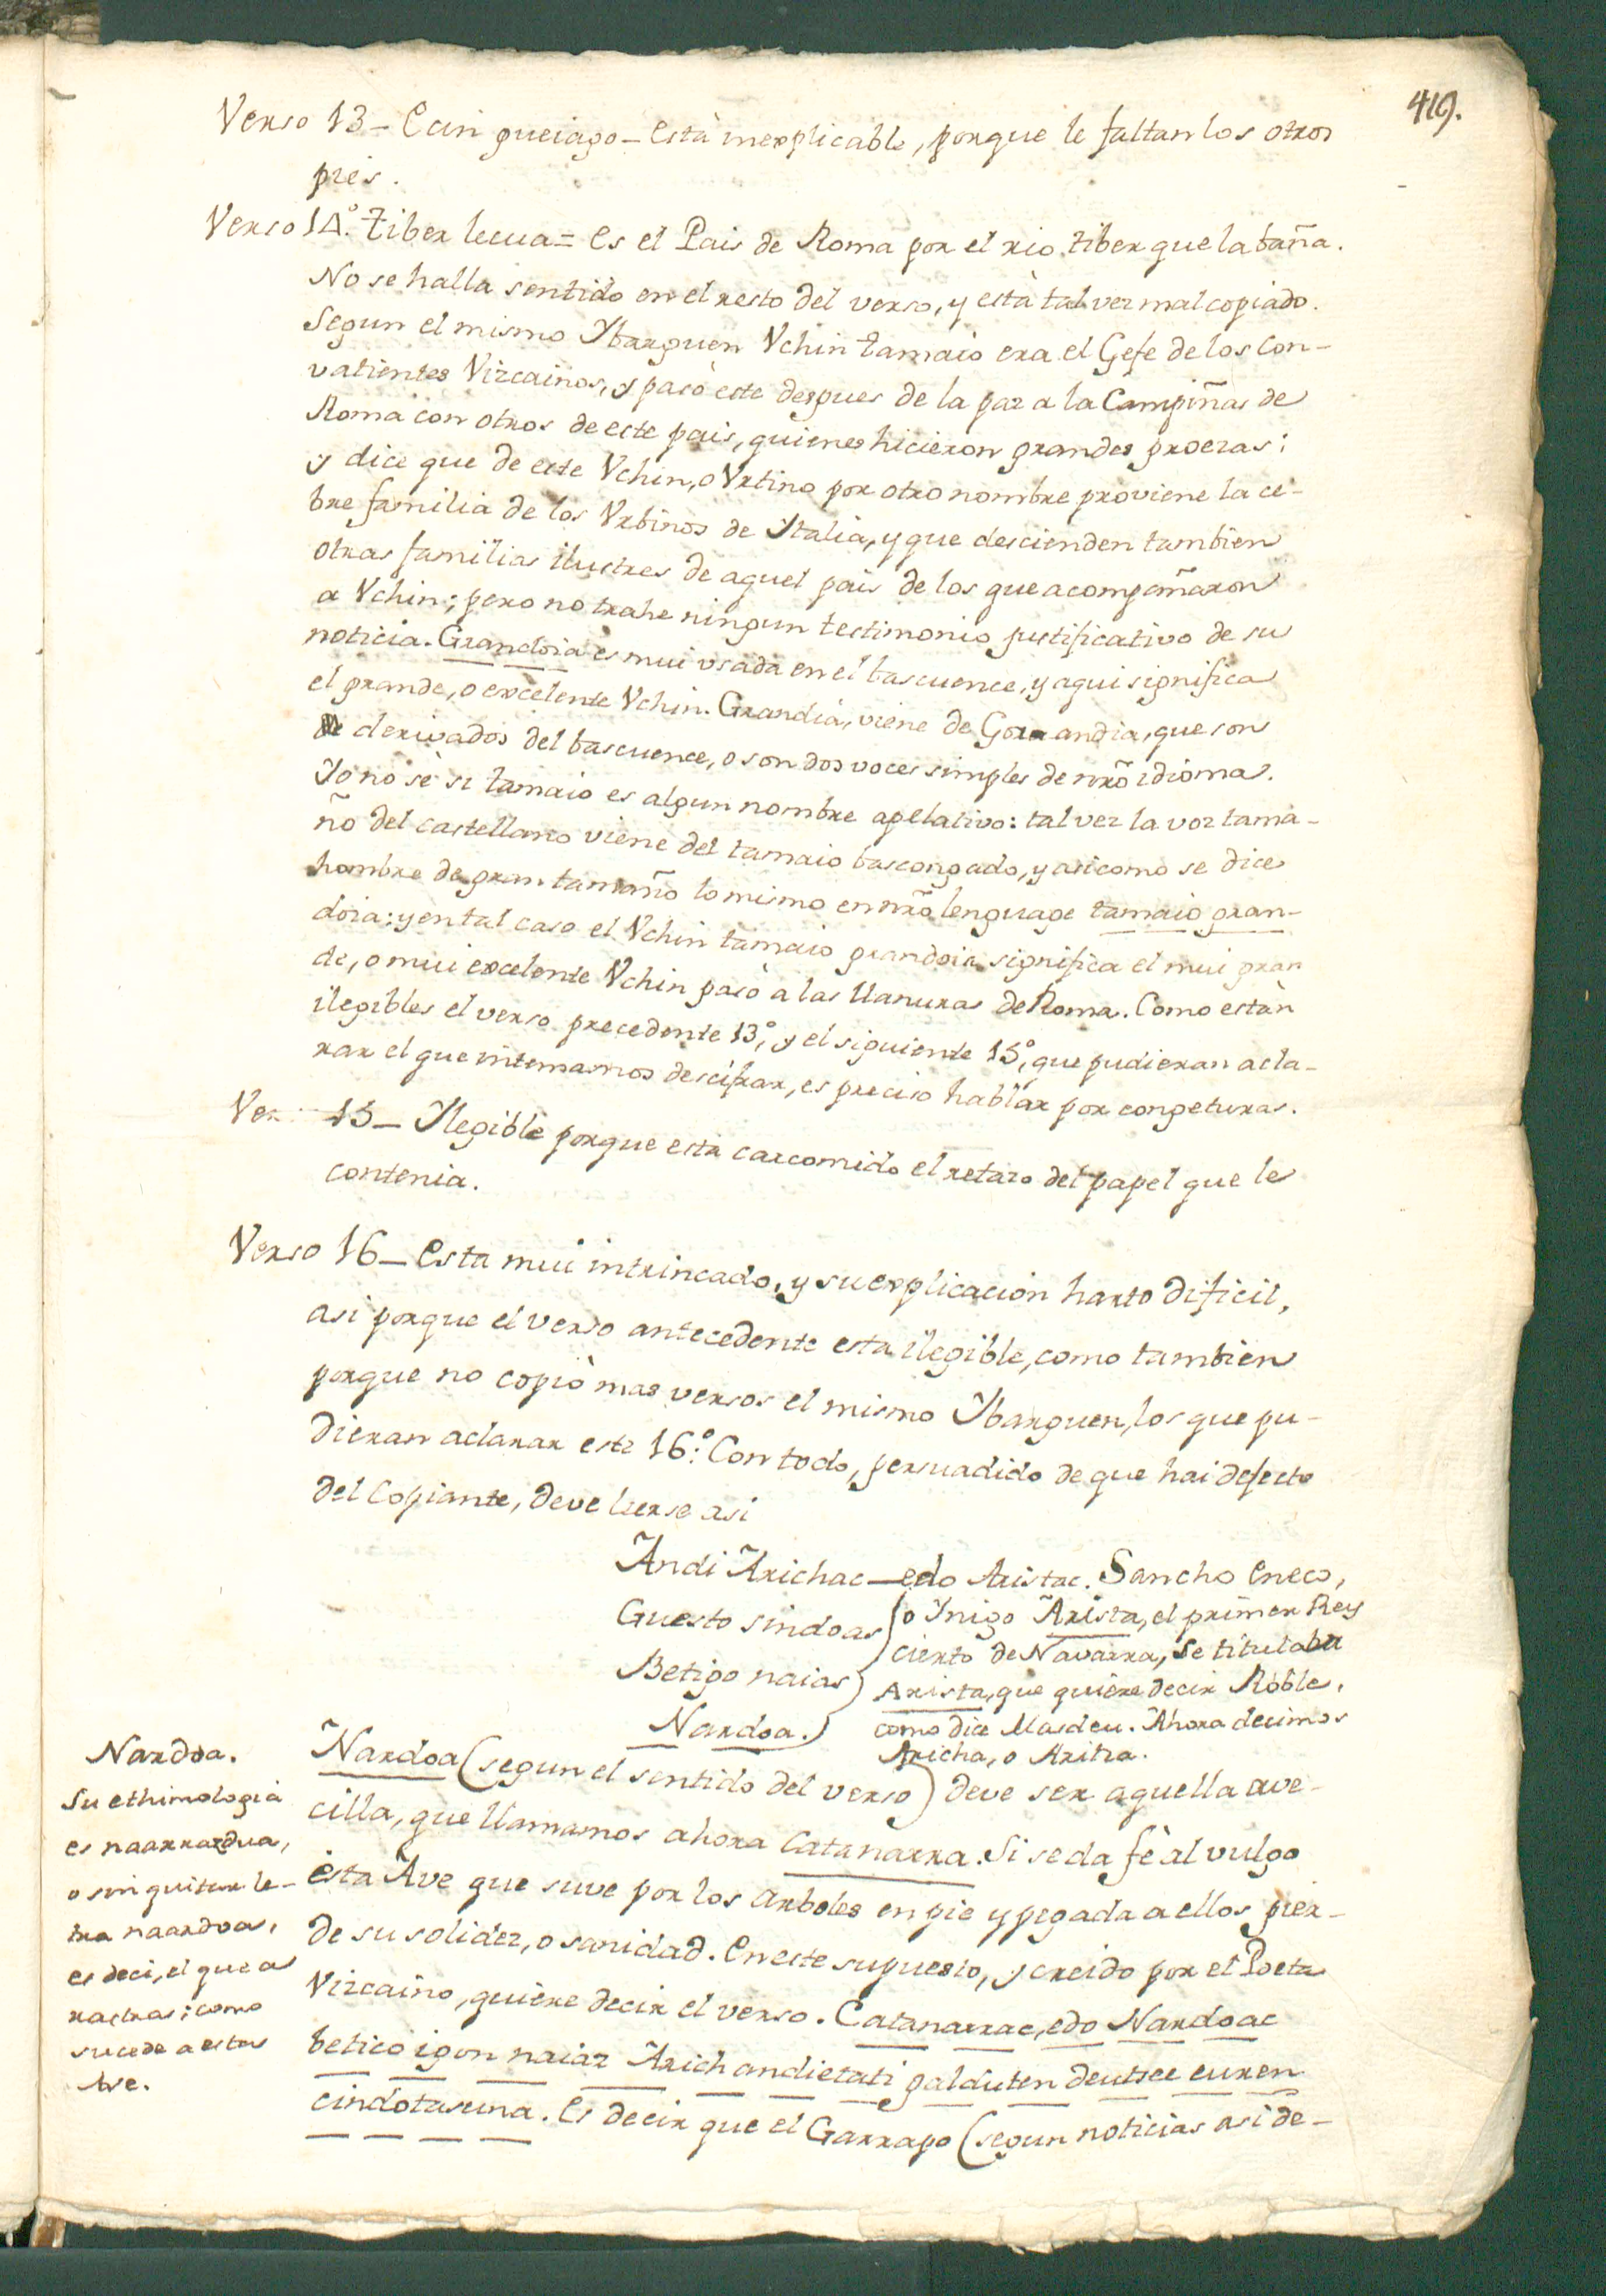 419.
Verso 13 – Ecin gueiago – Està inexplicable, porque le faltan los otros
pies.
Verso 14.° Tiber lecua = Es el Pais de Roma por el rio Tiber que la baña.
No se halla sentido en el resto del verso, y està tal vez mal copiado.
Segun el mismo Ybarguen Vchin tamaio era el Gefe de los con-
vatientes Vizcainos, y pasò este despues de la paz a la Campiñas de
Roma con otros de este pais, quienes hicieron grandes proezas;
y dice que de este Vchin, o Vrtino por otro nombre proviene la ce-
bre familia de los Vrbinos de Ytalia, y que descienden tambien
otras familias ilustres de aquel pais de los que acompañaron
a Vchin; pero no trahe ningun testimonio justificativo de su
noticia. Grandoia es mui vsada en el bascuence, y aqui significa
el grande, o excelente Vchin. Grandia, viene de Gora andia, que son
derivados del bascuence, o son dos voces simples de nrõ idioma.
Yo no sè si tamaio es algun nombre apelativo: tal vez la voz tama-
ño del castellano viene del tamaio bascongado, y asi como se dice
hombre de gran tamaño lo mismo en nrõ lenguage tamaio gran-
doia: y en tal caso el Vchin tamaio grandoia significa el mui gran
de, o mui excelente Vchin pasò a las llanuras de Roma. Como estàn
ilegibles el verso precedente 13°, y el siguiente 15°, que pudieran acla-
rar el que intemamos descifrar, es preciso hablar por congeturas.
Ver 15 – Ylegible porque esta carcomido el retazo del papel que le
contenia.
Verso 16 – Esta mui intrincado, y su explicacion harto dificil,
asi porque el verso antecedente esta ilegible, como tambien
porque no copiò mas versos el mismo Ybarguen, los que pu-
dieran aclarar este 16.° Con todo, persuadido de que hai defecto
del Copiante, deve leerse asi
Andi Arichac – edo Aristac. Sancho Eneco,
Guesto sindoas ( o Ynigo Arista, el primer Rey
cierto de Navarra, se titulaba
Betigo naias ) Arista, que quiere decir Roble,
Nardoa. ) como dice Masdeu. Ahora decimos
Aricha, o Aritza.
Nardoa (segun el sentido del verso) deve ser aquella ave-
cilla, que llamamos ahora Catanarra. Si se da fè al vulgo
èsta Ave que suve por los arboles en pie y pegada a ellos pier-
de su solidez, o sanidad. En este supuesto, y creido por el Poeta
Vizcaino, quiere decir el verso. Catanarrac, edo Nardoac
betico igon naiaz Arich andietati galduten deutsee euren
cindotasuna. Es decir que el Garrapo (segun noticias asi de-
Nardoa.
Su ethimologia
es naarrardua,
o sin quitar le-
tra naardoa,
es deci, el que a
rastras; como
sucede a estas
Ave.